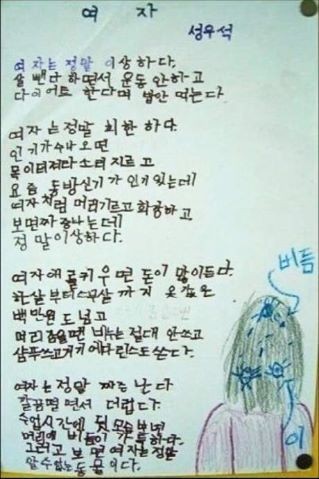 여 자
성우석
여자는 정말 이상하다.
살 뺀다 하면서 운동 안하고
다이어트 한다며 밥만 먹는다
여자는 정말 희한하다.
인기가수 나오면
목이터져라 소리 지르고
요즘 동방신기가 인기있는데
여자처럼 머리기르고 화장하고
보면짜증나는데
정말이상하다.
여자애로 키우면 돈이 많이든다.
한살부터 스무살 까지 옷값은
백만원도 넘고
머리감을땐 비누는 절대 안쓰고
샴푸쓰고거기에다 린스도 쓴다.
여자는 정말 짜증 난다
깔끔떨면서 더럽다.
수업시간에 뒷모습 보면
머리에 비듬이 가득하다.
그러고 보면 여자는 정말
알수없는 동물이다.
비듬
이